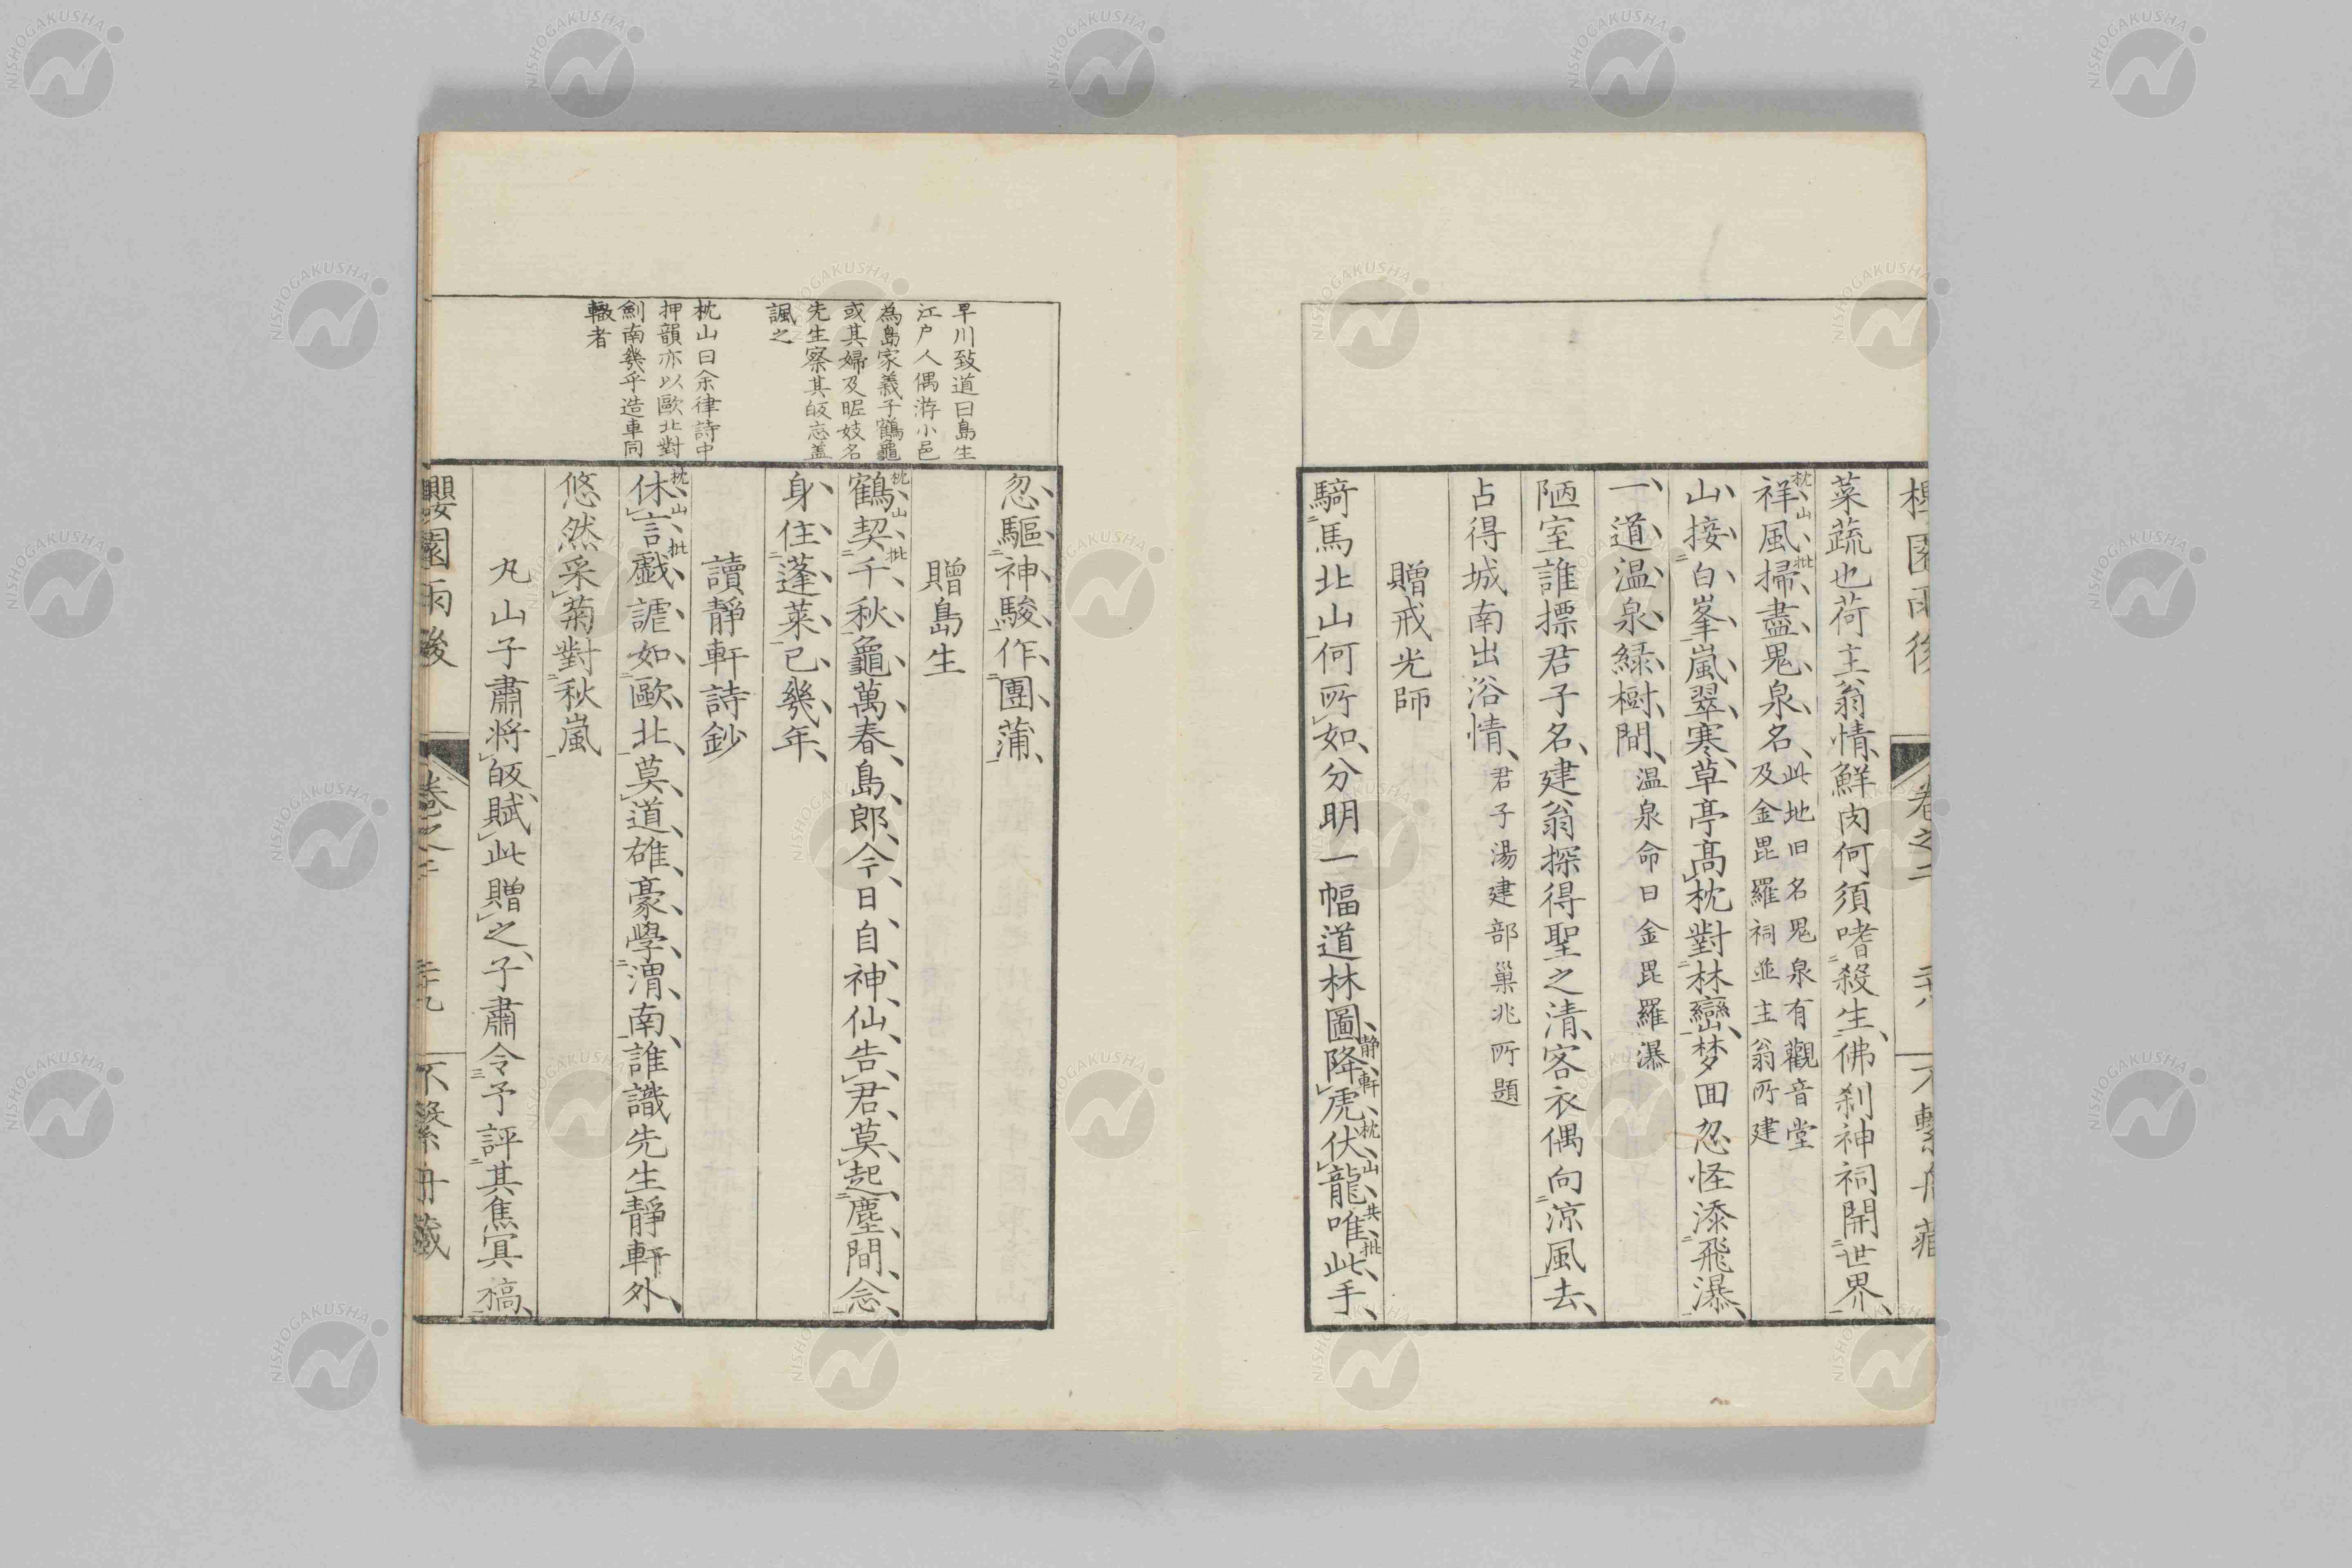 菜蔬也荷主翁情鮮肉何須嗜殺生佛刹神祠開世界
枕山批
祥風掃盡鬼泉名此地旧名鬼泉有觀音堂
及金毘羅祠並主翁所建
山接白峯嵐翠寒草亭高枕對林巒梦回忽怪添飛瀑
一道温泉緑樹間温泉命曰金毘羅瀑
陋室誰標君子名建翁探得聖之清客衣偶向涼風去
占得城南出浴情君子湯建部巢兆所題
贈戒光師
騎馬北山何所如分明一幅道林圖降虎伏龍唯此手
静軒枕山共批
早川致道曰島生
江户人偶游小邑
為島家義子鶴龜
或其婦及昵妓名
先生察其皈忘盖
諷之
枕山曰余律詩中
押韻亦以歐北對
劍南幾乎造車同
轍者
忽驅神駿作團蒲
贈島生
枕山批
鶴契千秋龜萬春島郎今日自神仙告君莫起塵間念
身住蓬萊已幾年
讀靜軒詩鈔
枕山批
休言戯謔如歐北莫道雄豪學渭南誰識先生靜軒外
悠然采菊對秋嵐
丸山子肅将皈賦此贈之子肅令予評其焦冥稿
櫻園雨後
卷之二
二十九
不繫舟藏
NISHOGAKUSHA